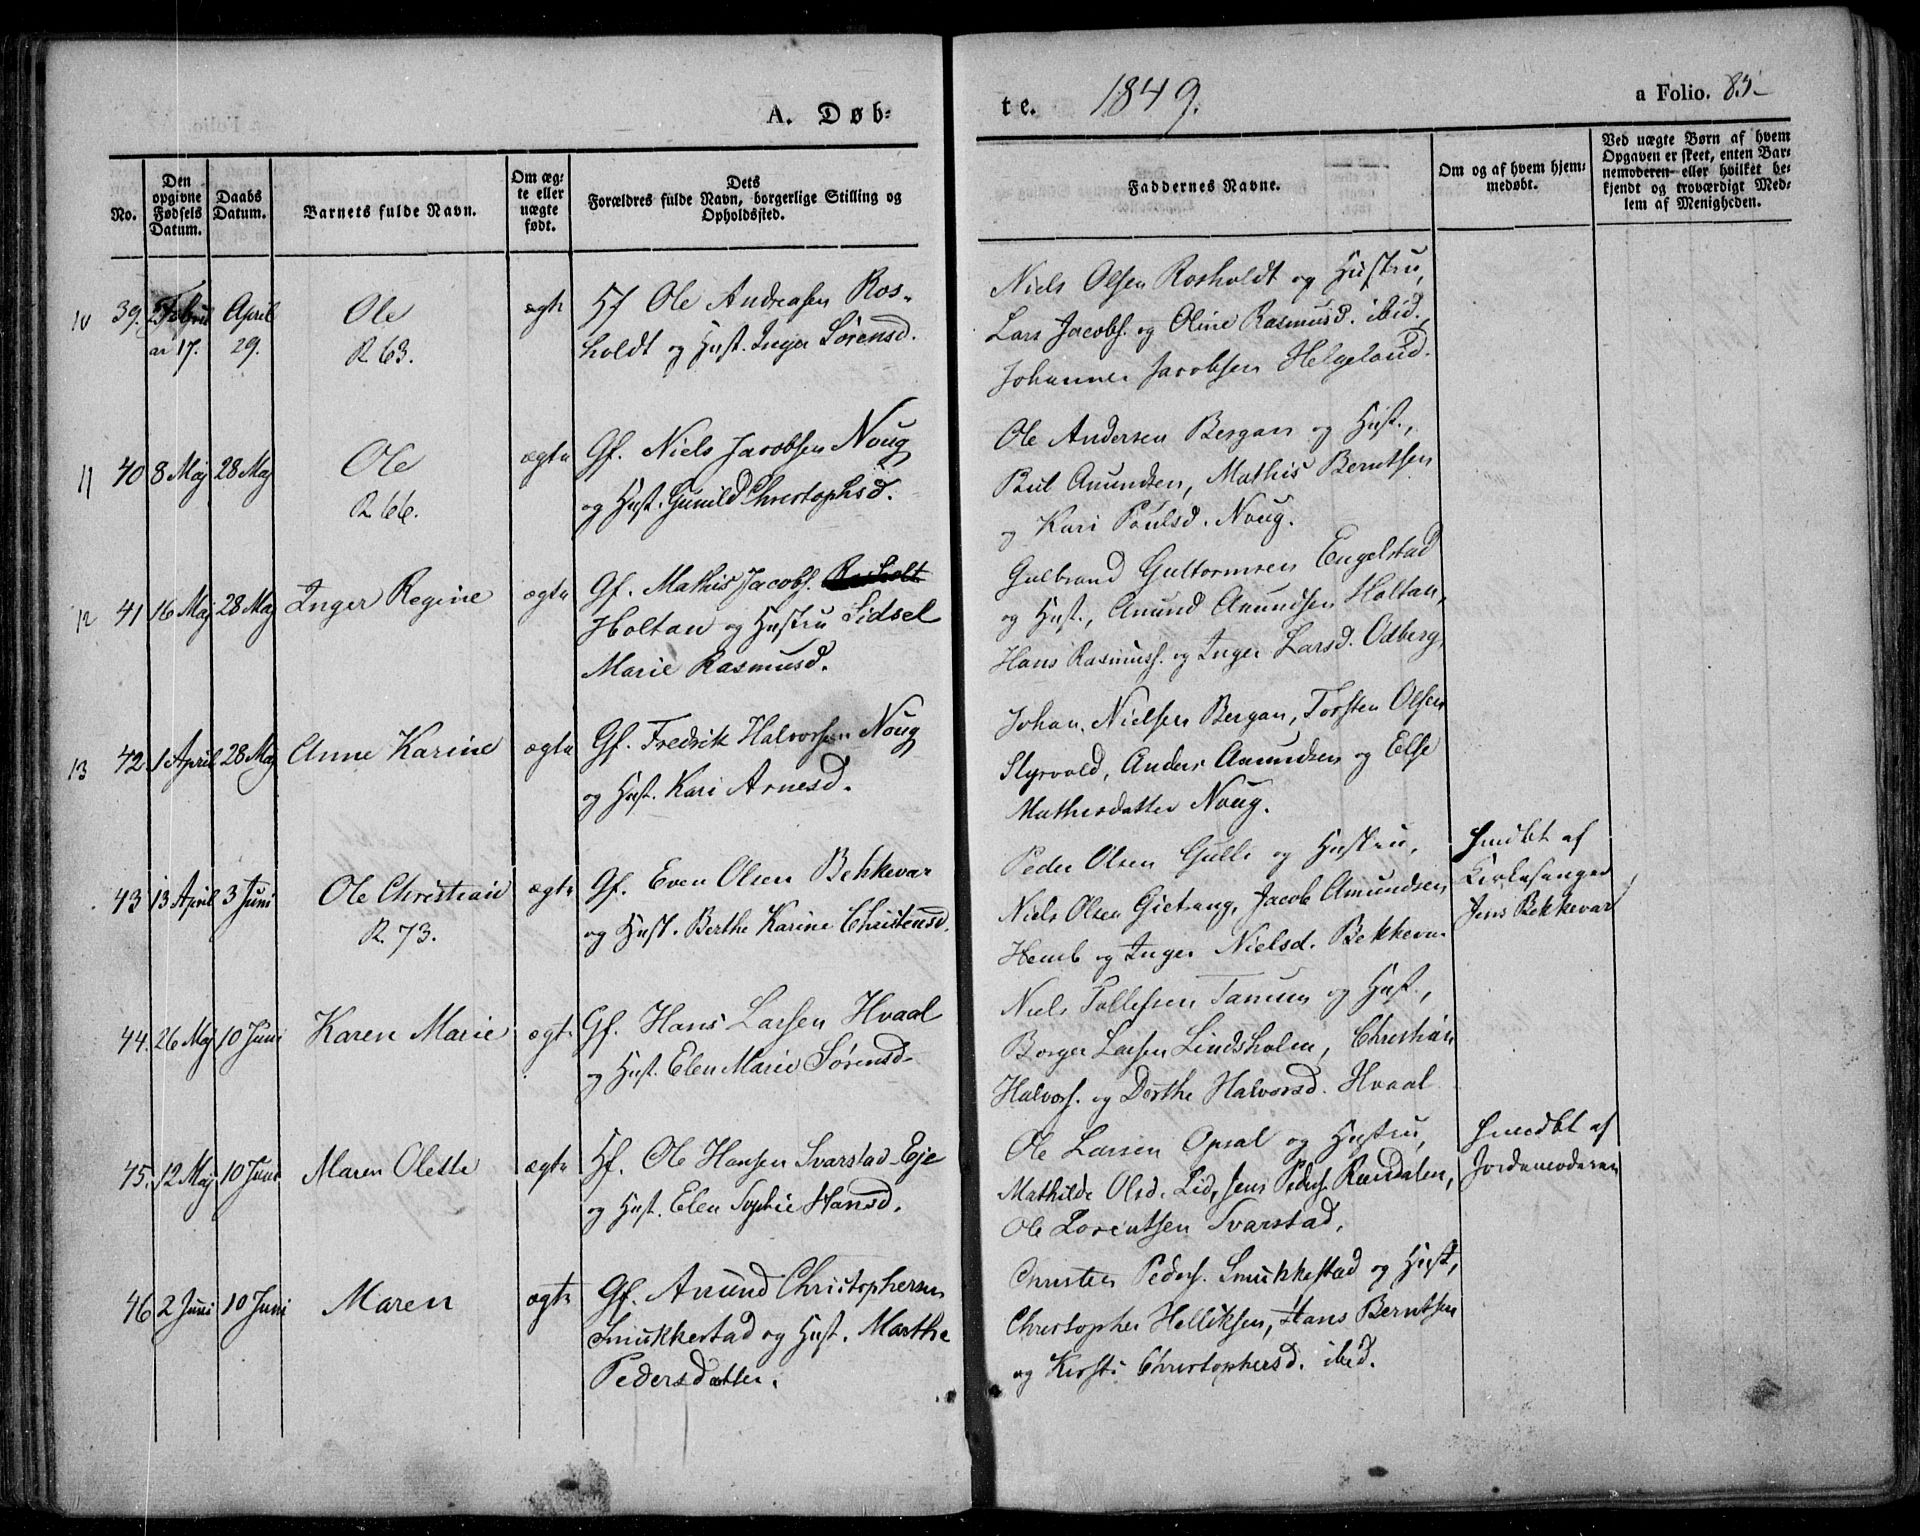 A. Døb-
te. 1849. a Folio. 85
No.
Den opgivne Fødsels Datum.
Daabs Datum.
Barnets fulde Navn.
Om ægte eller uægte født.
Dets Forældres fulde Navn, borgerlige Stilling og Opholdssted.
Faddernes Navne.
Om og af hvem hjemmedøbt.
Ved uægte Børn af hvem Opgaven er skeet, enten Barnemoderen eller hvilket bekjendt og troværdigt Medlem af Menigheden.
10 39. Februar 17. April 29. Ole R 63. ægte
Hf Ole Andreasen Ros-
holdt og Hust. Inger Sørensd.
Niels Olsen Rosholdt og Hustru,
Lars Jacobs. og Oline Rasmusd. ibid.,
Johannes Jacobsen Helgeland.
11 40 8 Maj 28 Maj Ole R 66. ægte
Gf. Niels Jacobsen Noug
og Hust. Gunild Christophsd.
Ole Andersen Bergan og Hust.,
Poul Amundsen, Mathis Berntsen
og Kari Poulsd. Noug.
12 41 16 Maj 28 Maj Inger Regine ægte
Gf. Mathis Jacobs. Rosholt
Holtan og Hustru Sidsel
Marie Rasmusd.
Gulbrand Guttormsen Engelstad
og Hust., Amund Amundsen Holtan,
Hans Rasmuss. og Inger Larsd. Odberg,
13 42. 1 April 28 Maj Anne Karine ægte
Gf. Fredrik Halvorsen Noug
og Hust. Kari Arnesd.
Johan Nielsen Bergan, Torsten Olsen
Styrvold, Anders Amundsen og Else
Mathisdatter Noug.
43 13 April 3 Juni Ole Christian R. 73. ægte
Gf. Even Olsen Bekkevar
og Hust. Berthe Karine Christensd.
Peder Olsen Gulli og Hustru,
Niels Olsen Gietrang, Jacob Amundsen
Hemb og Inger Nielsd. Bekkevar
hmdbt af
Kirkesanger
Jens Bekkevar
44. 26 Maj 10 Juni Karen Marie ægte
Gf. Hans Larsen Hvaal
og Hust. Elen Marie Sørensd.
Niels Tollefsen Tanum og Hust.,
Borger Larsen Lindsholm, Christian
Halvors. og Dorthe Halvorsd. Hvaal
45. 12 Maj 10 Juni Maren Olette ægte
Hf. Ole Hansen Svarstad Eje
og Hust. Elen Sophie Hansd.
Ole Larsen Opsal og Hustru,
Mathilde Olsd. Lid, Jens Peders. Ramdalen,
Ole Lorentsen Svarstad.
hmdbt af
Jordemoderen
46 2 Juni 10 Juni Maren ægte
Gf. Amund Christophersen
Smukkestad og Hust. Marthe
Pedersdatter.
Christen Peders. Smukkestad og Hust,
Christopher Helliksen, Hans Berntsen
og Kirsti Christophersd. ibid.